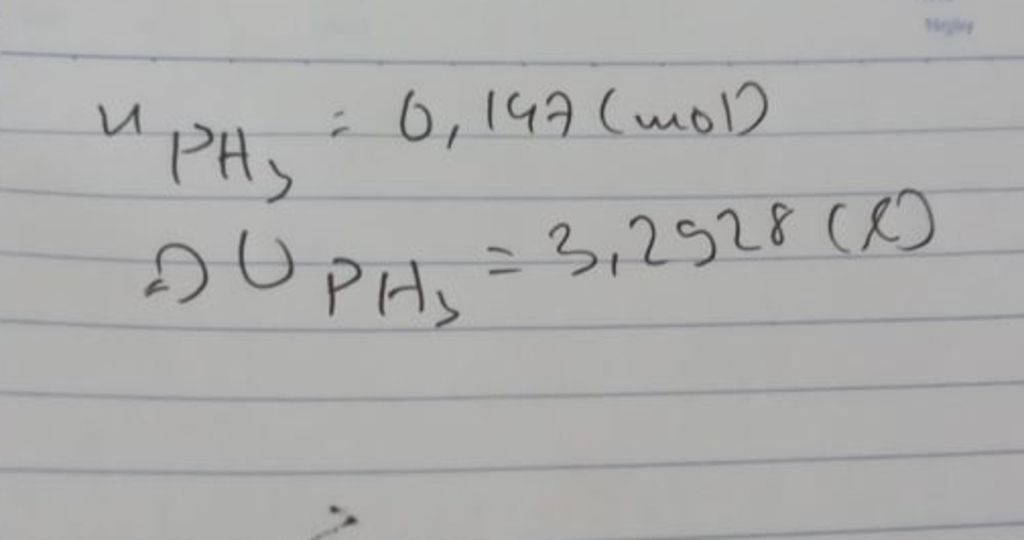 n PH3 = 0,147 (mol)
=> V PH3 = 3,2928 (l)